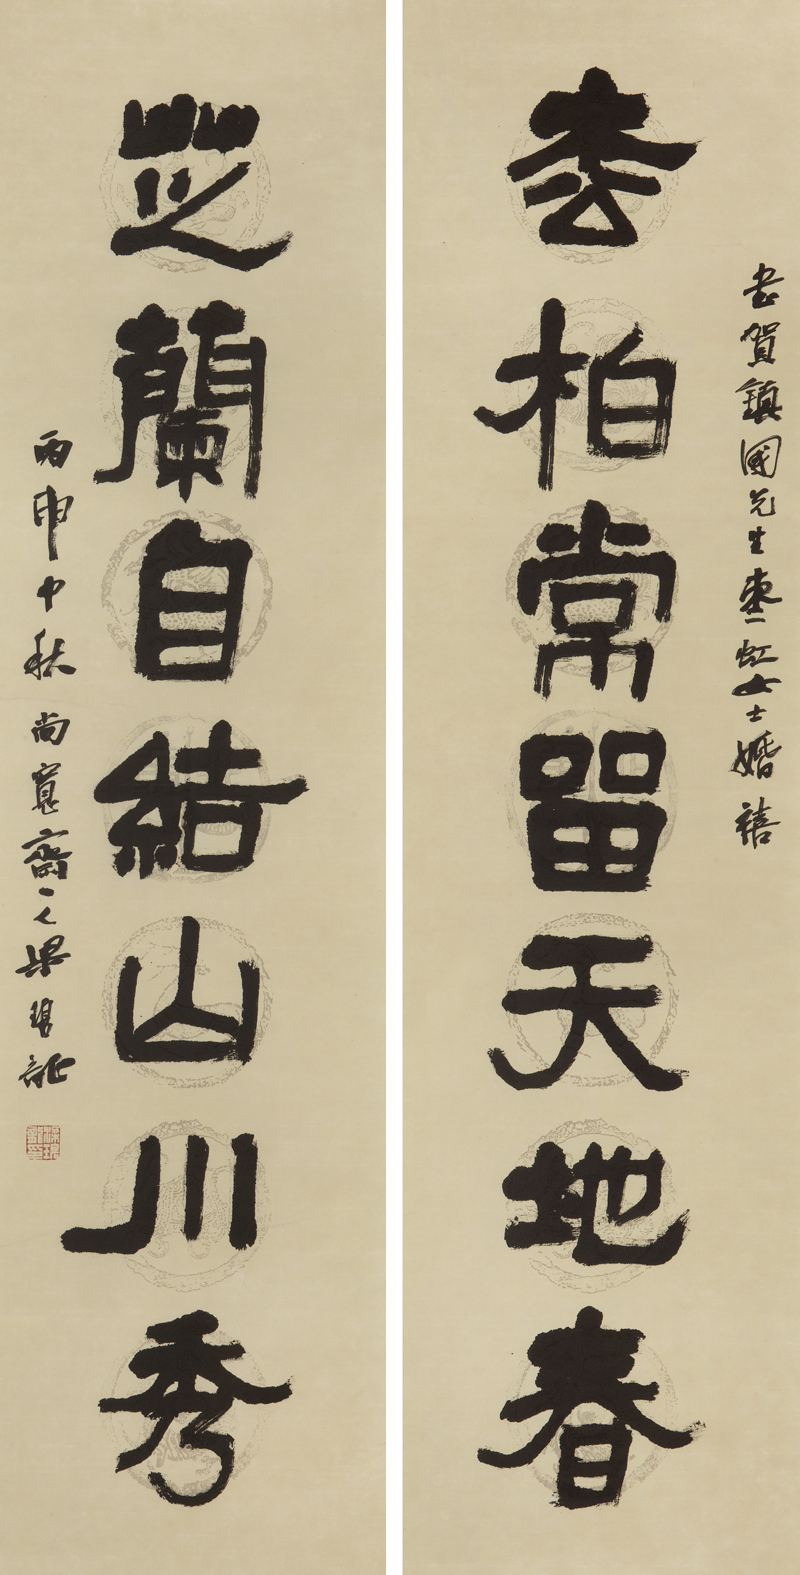 書賀鎮國先生虹女士婚禧
枩柏常留天地春
芝蘭自結山川秀
丙申中秋尚寬齋人梁